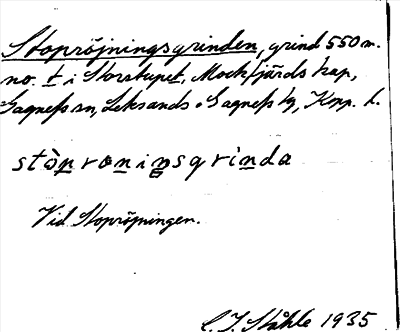 Stopröjningsgrinden, grind 550 m.
no. t i Storstupet, Mockfjärds kap,
Gagnefs sn, Leksands o Gagnefs tg, Kopp. l.
stòpronıŋsgrinda
Vid Stopröjningen.
C. I. Ståhle 1935